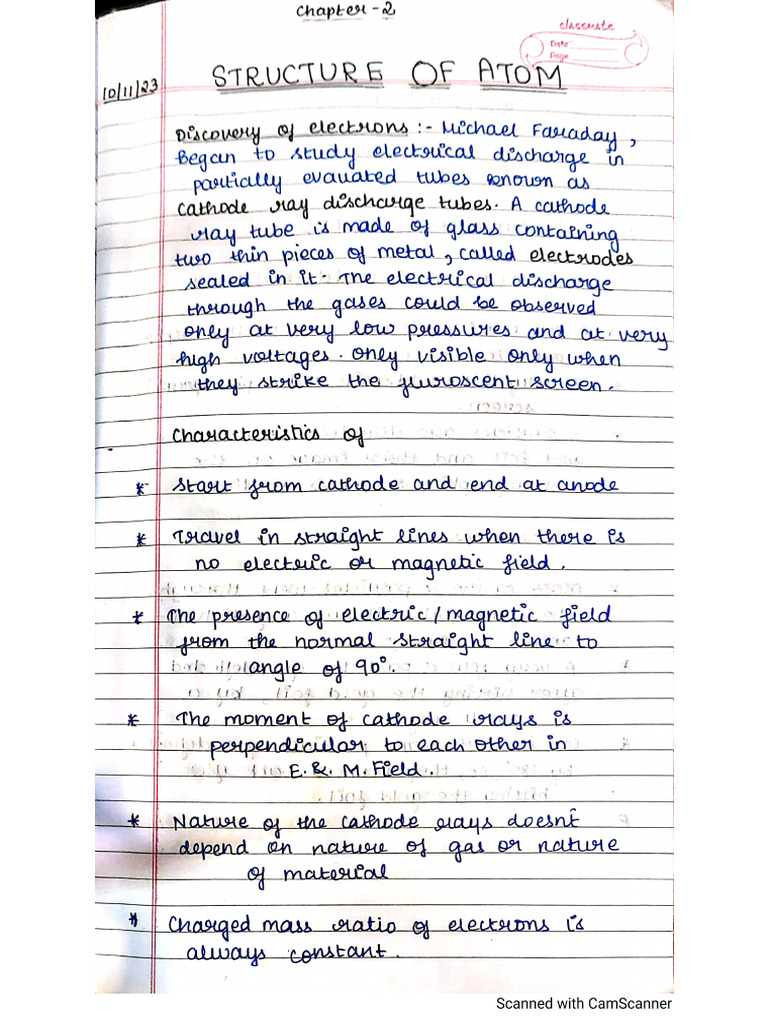 Chapter - 2
classmate
Date
Page
10/11/23
STRUCTURE OF ATOM
Discovery of electrons :- Michael Faraday,
Began to study electrical discharge in
partially evauated tubes known as
cathode ray discharge tubes. A cathode
ray tube is made of glass containing
two thin pieces of metal, called electrodes
sealed in it. The electrical discharge
through the gases could be observed
only at very low pressures and at very
high voltages. Only visible only when
they strike the fluroscent screen.
Characteristics of
* Start from cathode and end at anode
* Travel in straight lines when there is
no electric or magnetic field.
* The presence of electric/magnetic field
from the normal straight line to
angle of 90°.
* The moment of cathode rays is
perpendicular to each other in
E. & M. Field.
* Nature of the cathode rays doesn't
depend on nature of gas or nature
of material
* Charged mass ratio of electrons is
always constant.
Scanned with CamScanner